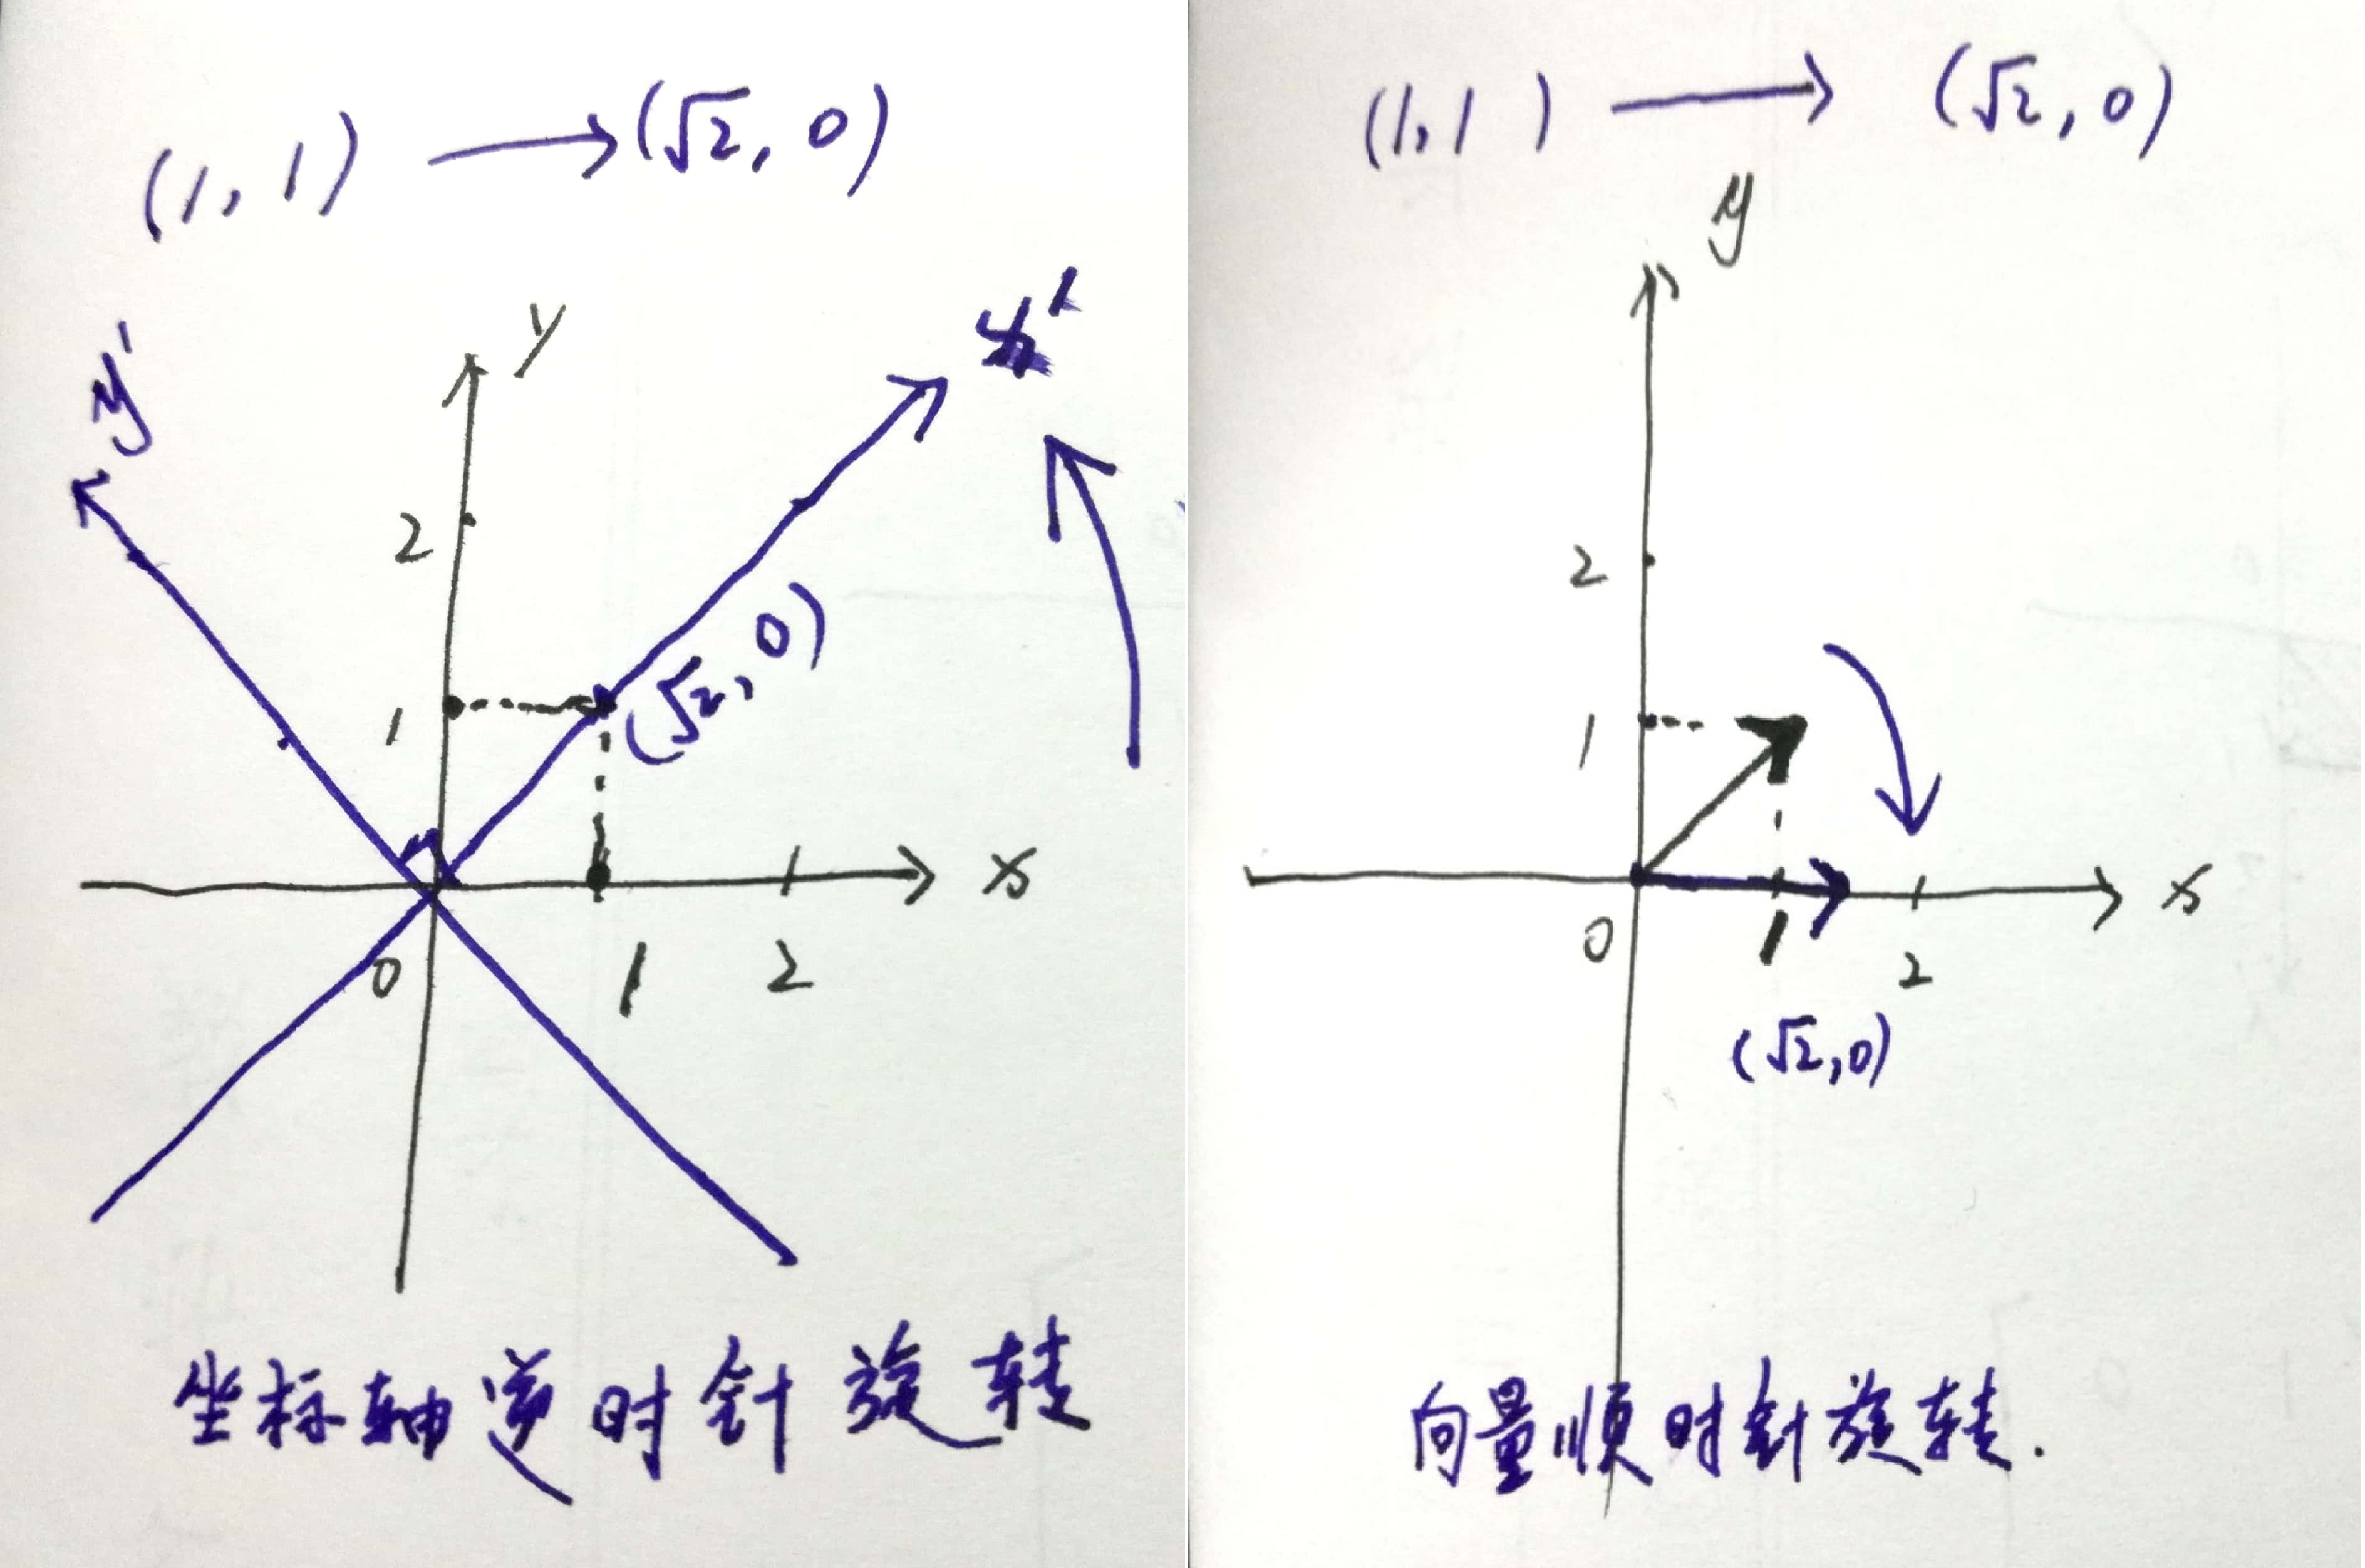 (1, 1) → (√2, 0)
y
y'
x'
2
1
(√2, 0)
x
0
1
2
坐标轴逆时针旋转
(1, 1) → (√2, 0)
y
2
1
x
0
1
2
(√2, 0)
向量顺时针旋转.